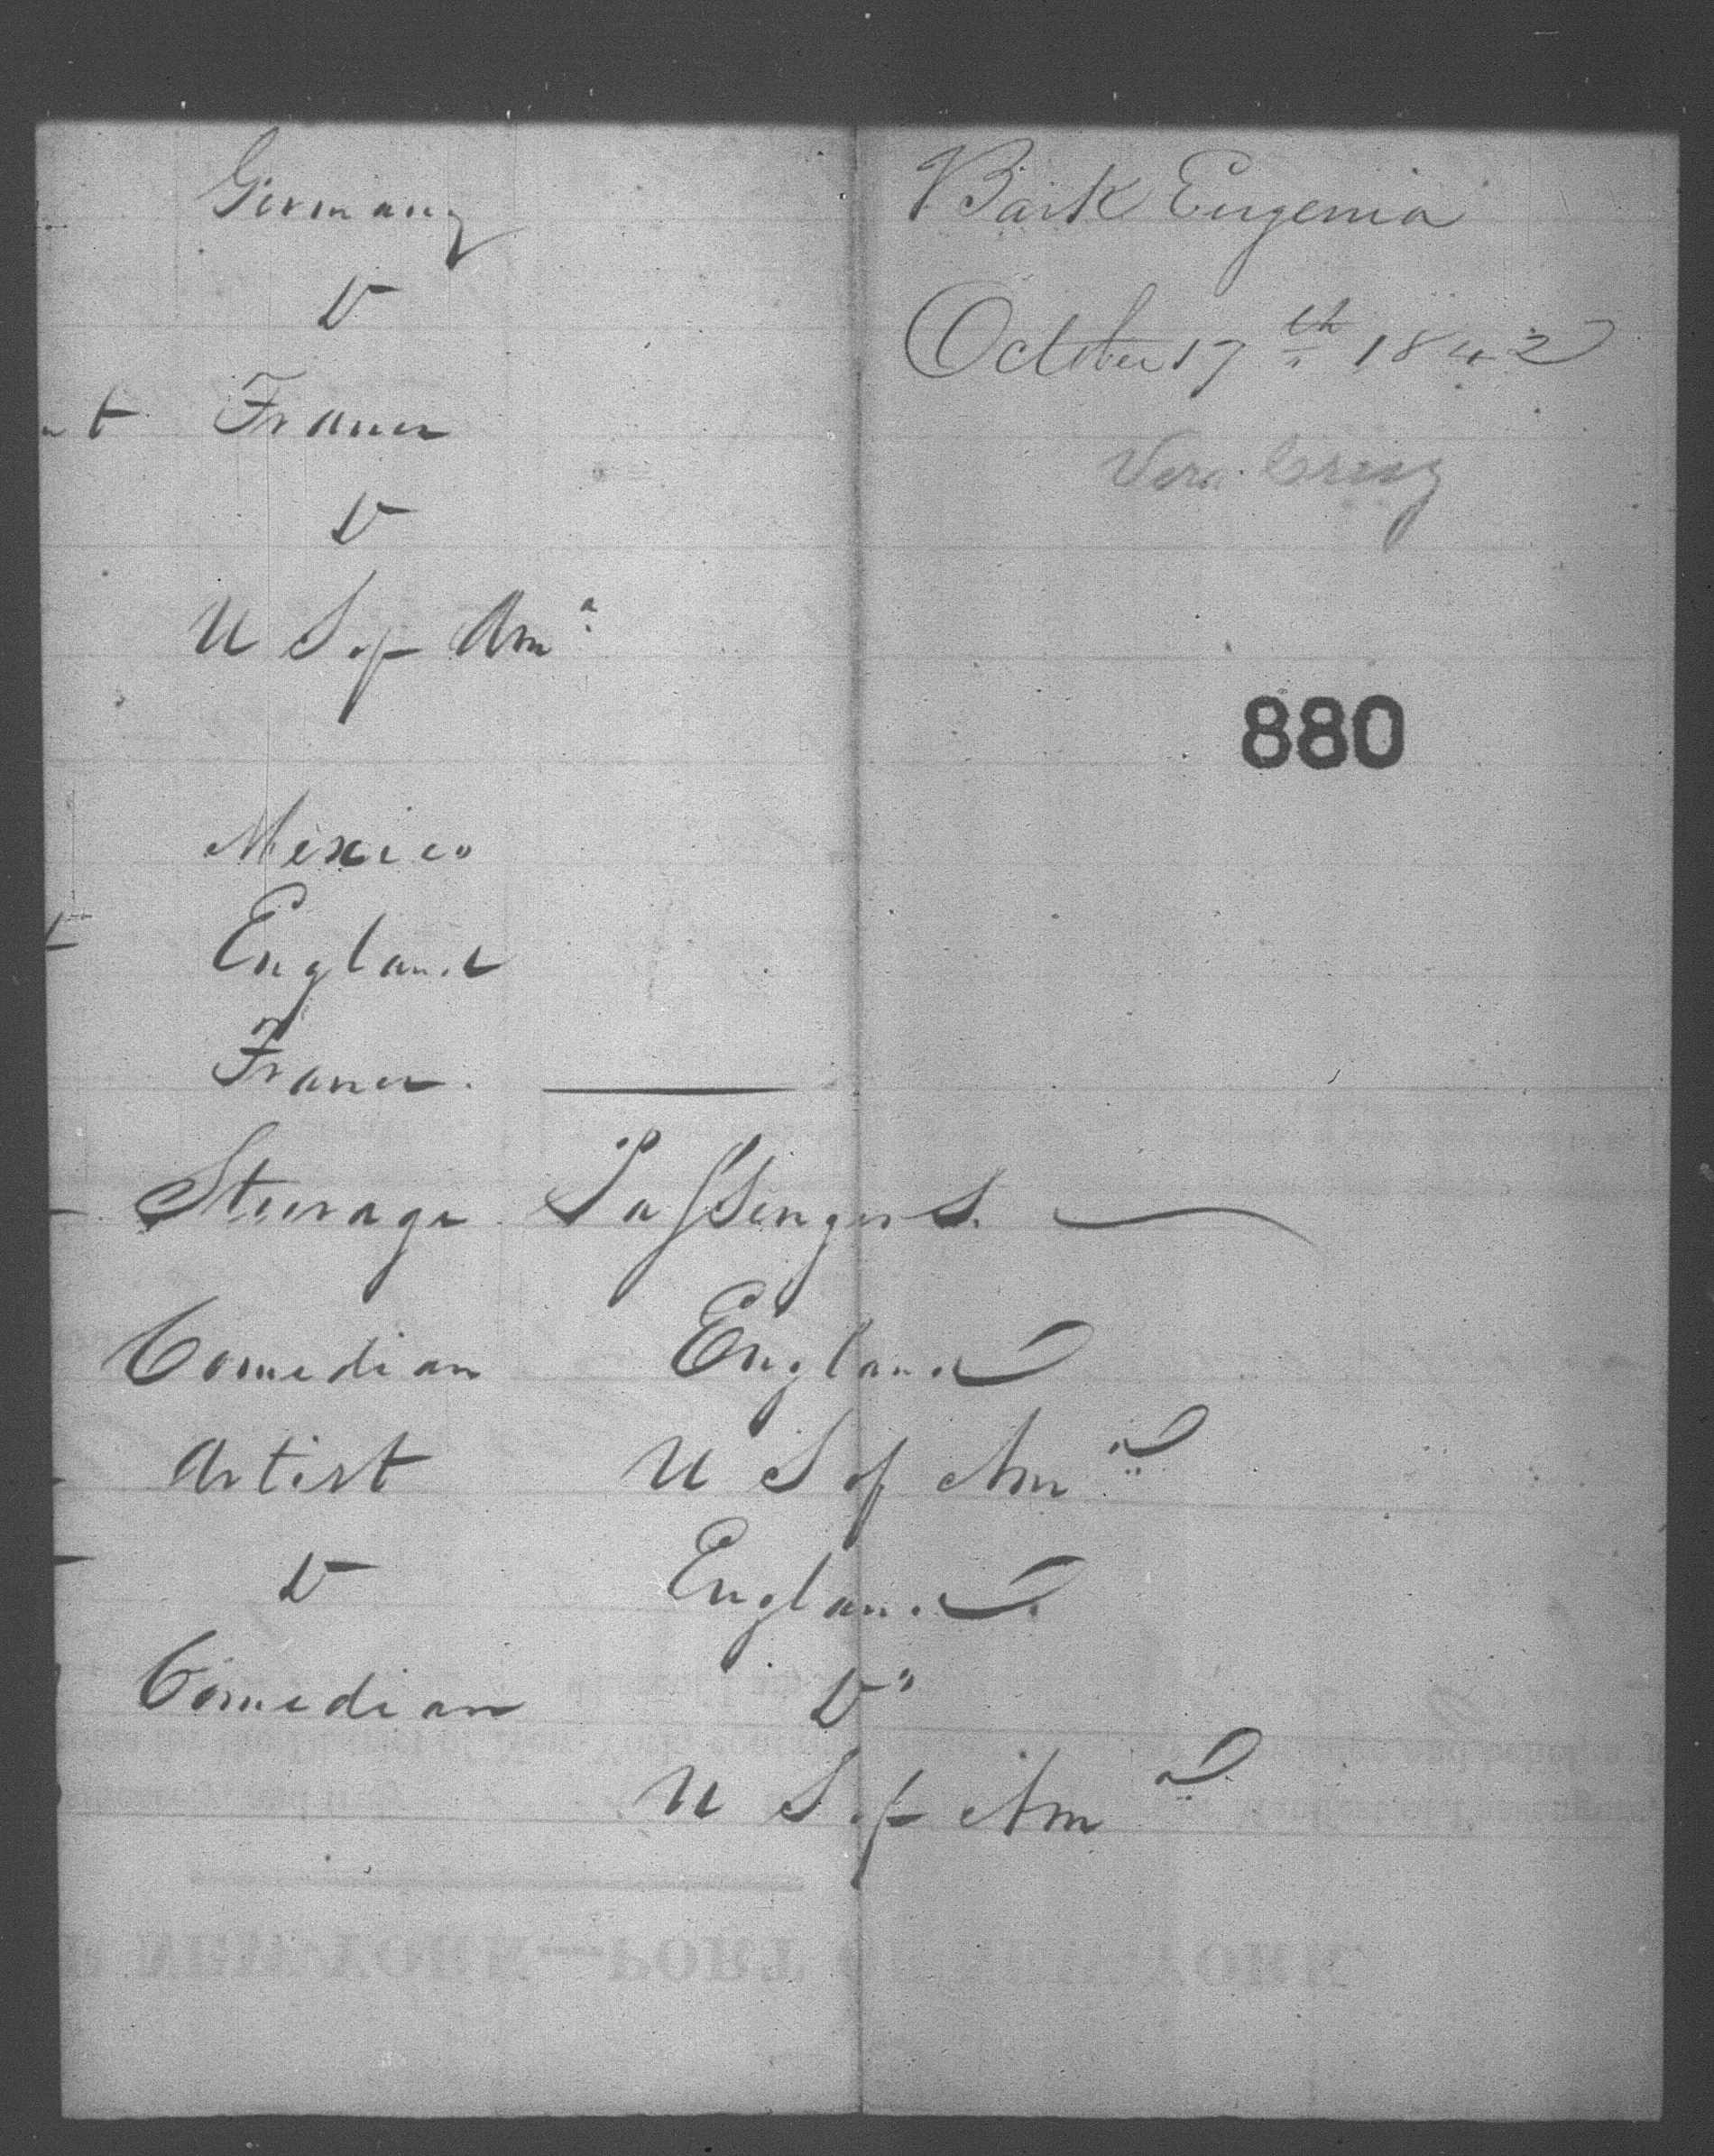 Germany
Do
France
Do
U S of Amª
Mexico
England
France.
Steerage Passengers.
Comedian England
Artist U S of Amª
Do England
Comedian Do
U S of Amª
Bark Eugenia
October 17th 1842
Vera Cruz
880